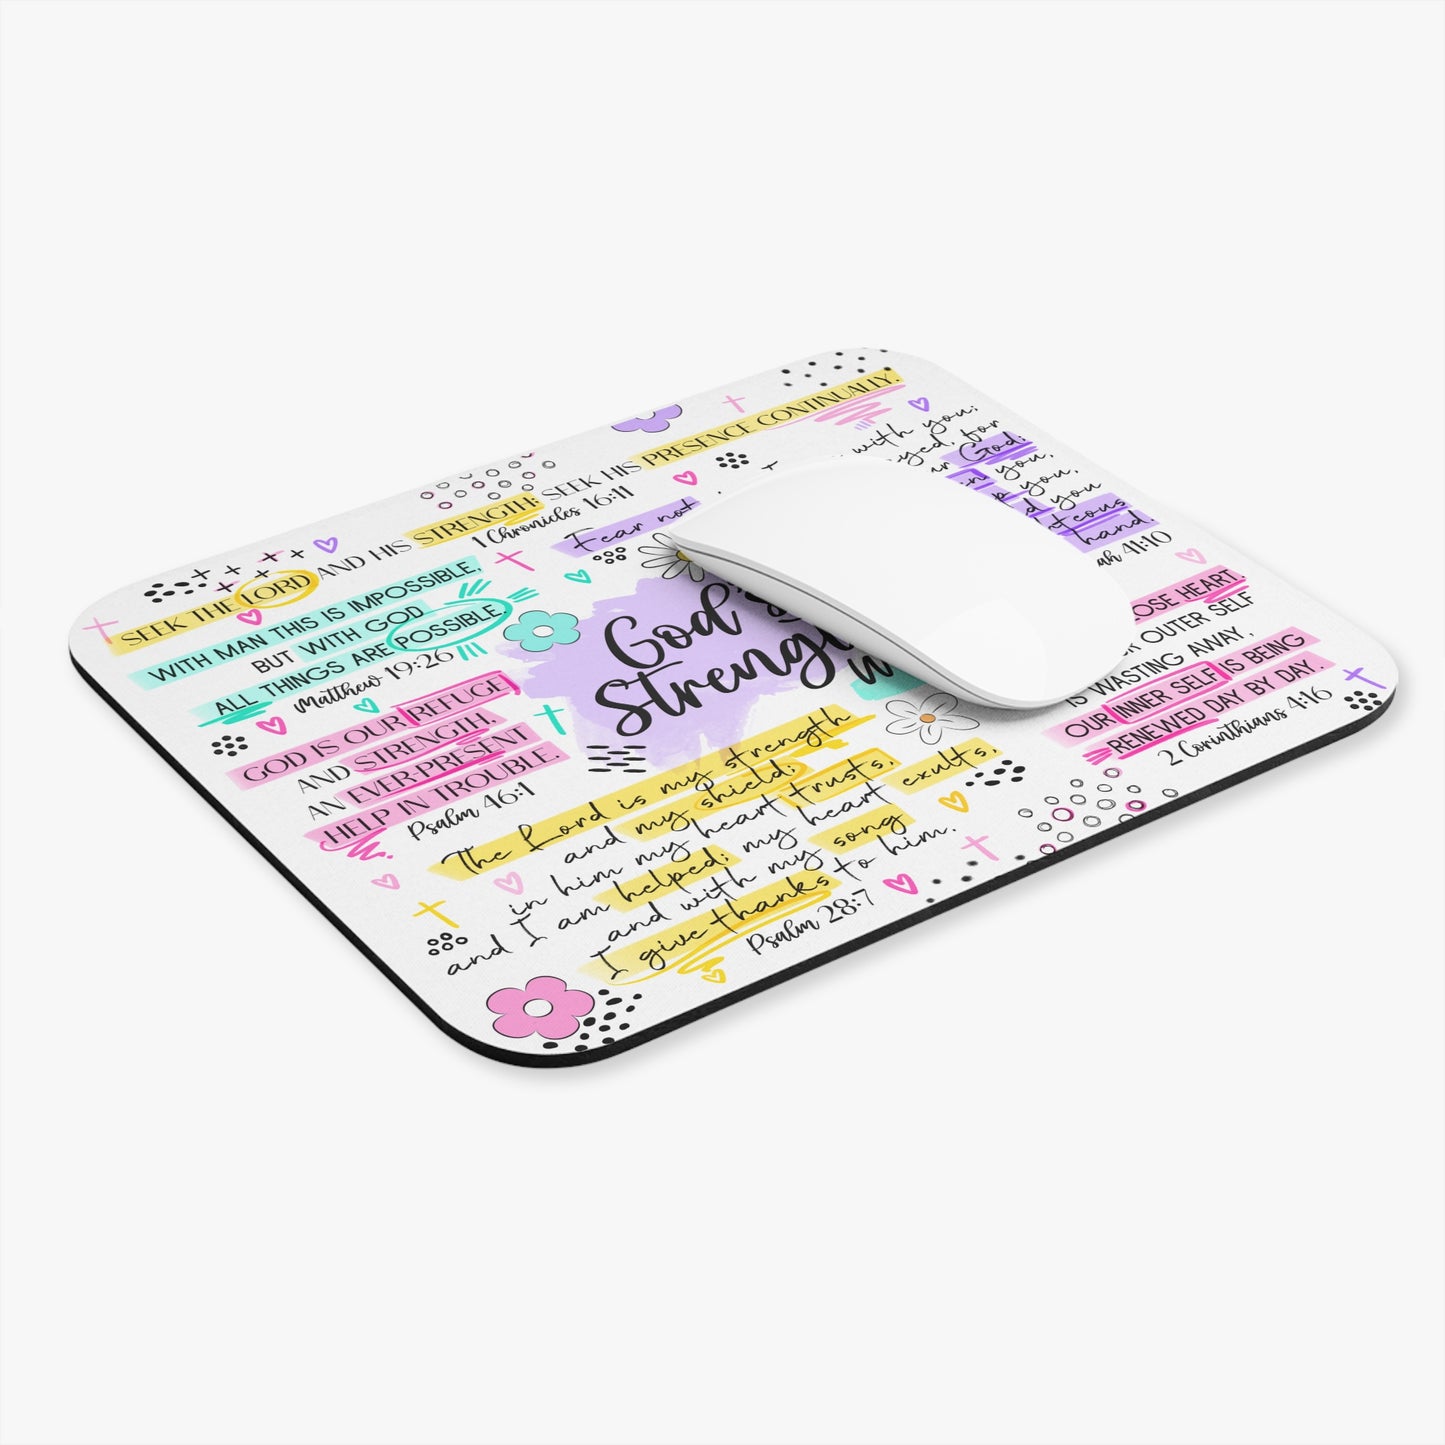 SEEK THE LORD AND HIS STRENGTH; SEEK HIS PRESENCE CONTINUALLY.
1 Chronicles 16:11
WITH MAN THIS IS IMPOSSIBLE,
BUT WITH GOD
ALL THINGS ARE POSSIBLE
Matthew 19:26
GOD IS OUR REFUGE
AND STRENGTH,
AN EVER-PRESENT
HELP IN TROUBLE.
Psalm 46:1
Fear not
with you;
for
God;
you,
you,
you
hand.
41:10
God's
LOSE HEART.
OUTER SELF
IS WASTING AWAY,
OUR INNER SELF IS BEING
RENEWED DAY BY DAY.
2 Corinthians 4:16
The Lord is my strength
and my shield;
in him my heart trusts,
and I am helped; my heart exults,
and with my song
I give thanks to him.
Psalm 28:7